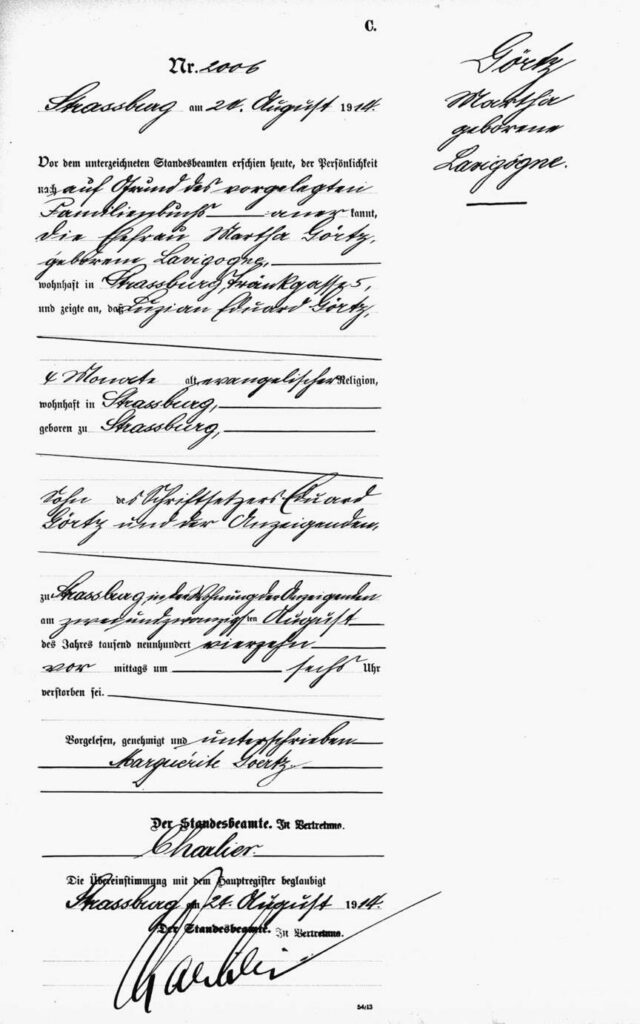 C.
Nr. 2006
Strassburg am 24. August 1914.
Vor dem unterzeichneten Standesbeamten erschien heute, der Persönlichkeit
nach auf Grund des vorgelegten
Familienbuchs anerkannt,
die Ehefrau Martha Görtz,
geborene Lavigogne,
wohnhaft in Strassburg, Tränkgasse 5,
und zeigte an, daß Luzian Eduard Görtz,
4 Monate alt, evangelischer Religion,
wohnhaft in Strassburg,
geboren zu Strassburg,
Sohn des Schriftsetzers Eduard
Görtz und der Anzeigenden,
zu Strassburg, in der Wohnung der Anzeigenden
am zweiundzwanzigsten August
des Jahres tausend neunhundert vierzehn
vor mittags um sechs Uhr
verstorben sei.
Vorgelesen, genehmigt und unterschrieben
Marguerite Goertz.
Der Standesbeamte. In Vertretung.
Charlier.
Die Übereinstimmung mit dem Hauptregister beglaubigt
Strassburg am 24. August 1914.
Der Standesbeamte. In Vertretung.
54/13
Görtz
Martha
geborene
Lavigogne.